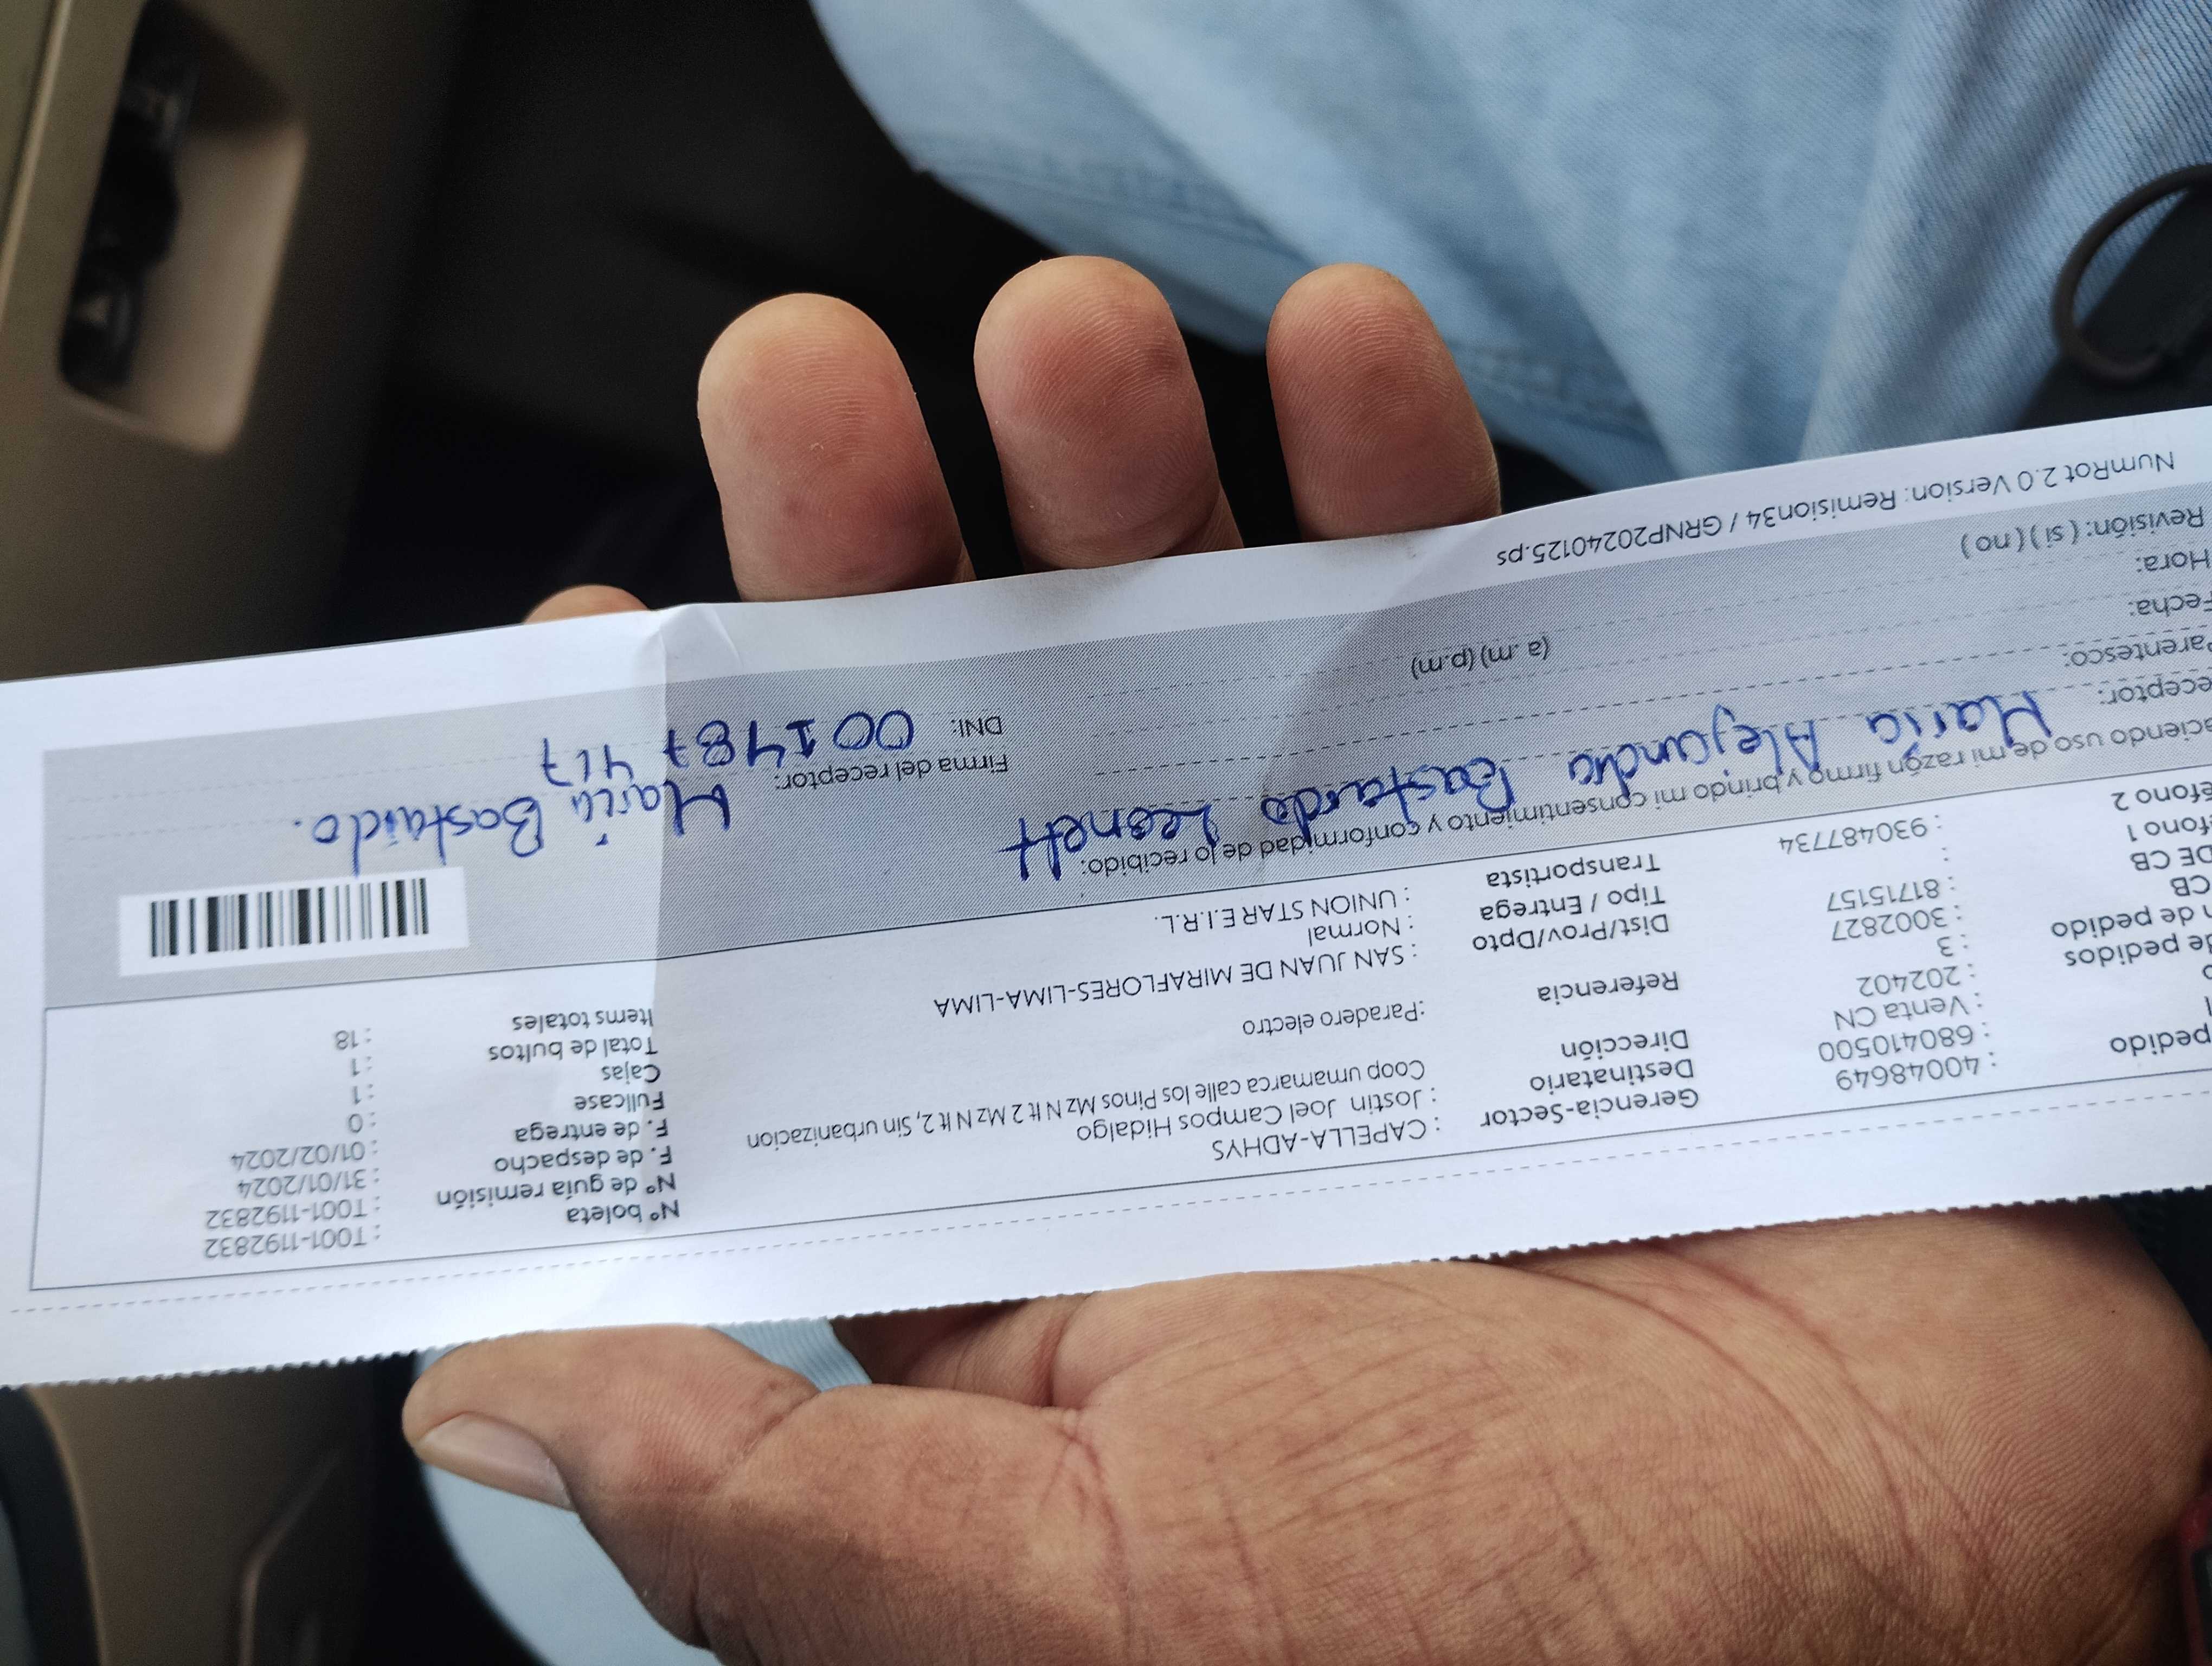 pedido : 40048649
: 680410500
: Venta CN
: 202402
de pedidos : 3
n de pedido : 3002827
CB : 81715157
DE CB :
fono 1 : 930487734
éfono 2
Gerencia-Sector : CAPELLA-ADHYS
Destinatario : Jostin Joel Campos Hidalgo
Dirección Coop umamarca calle los Pinos Mz N lt 2 Mz N lt 2, Sin urbanizacion
Referencia :Paradero electro
Dist/Prov/Dpto : SAN JUAN DE MIRAFLORES-LIMA-LIMA
Tipo / Entrega : Normal
Transportista : UNION STAR E.I.R.L.
N° boleta : T001-1192832
N° de guía remisión : T001-1192832
F. de despacho : 31/01/2024
F. de entrega : 01/02/2024
Fullcase : 0
Cajas : 1
Total de bultos : 1
Items totales : 18
aciendo uso de mi razón firmo y brindo mi consentimiento y conformidad de lo recibido:
eceptor: Maria Alejandra Bastardo Leonett
Parentesco:
Fecha:
Hora: (a .m) (p.m)
Revisión: ( si ) ( no )
Firma del receptor: María Bastardo.
DNI: 001487 417
NumRot 2.0 Version: Remision34 / GRNP20240125.ps